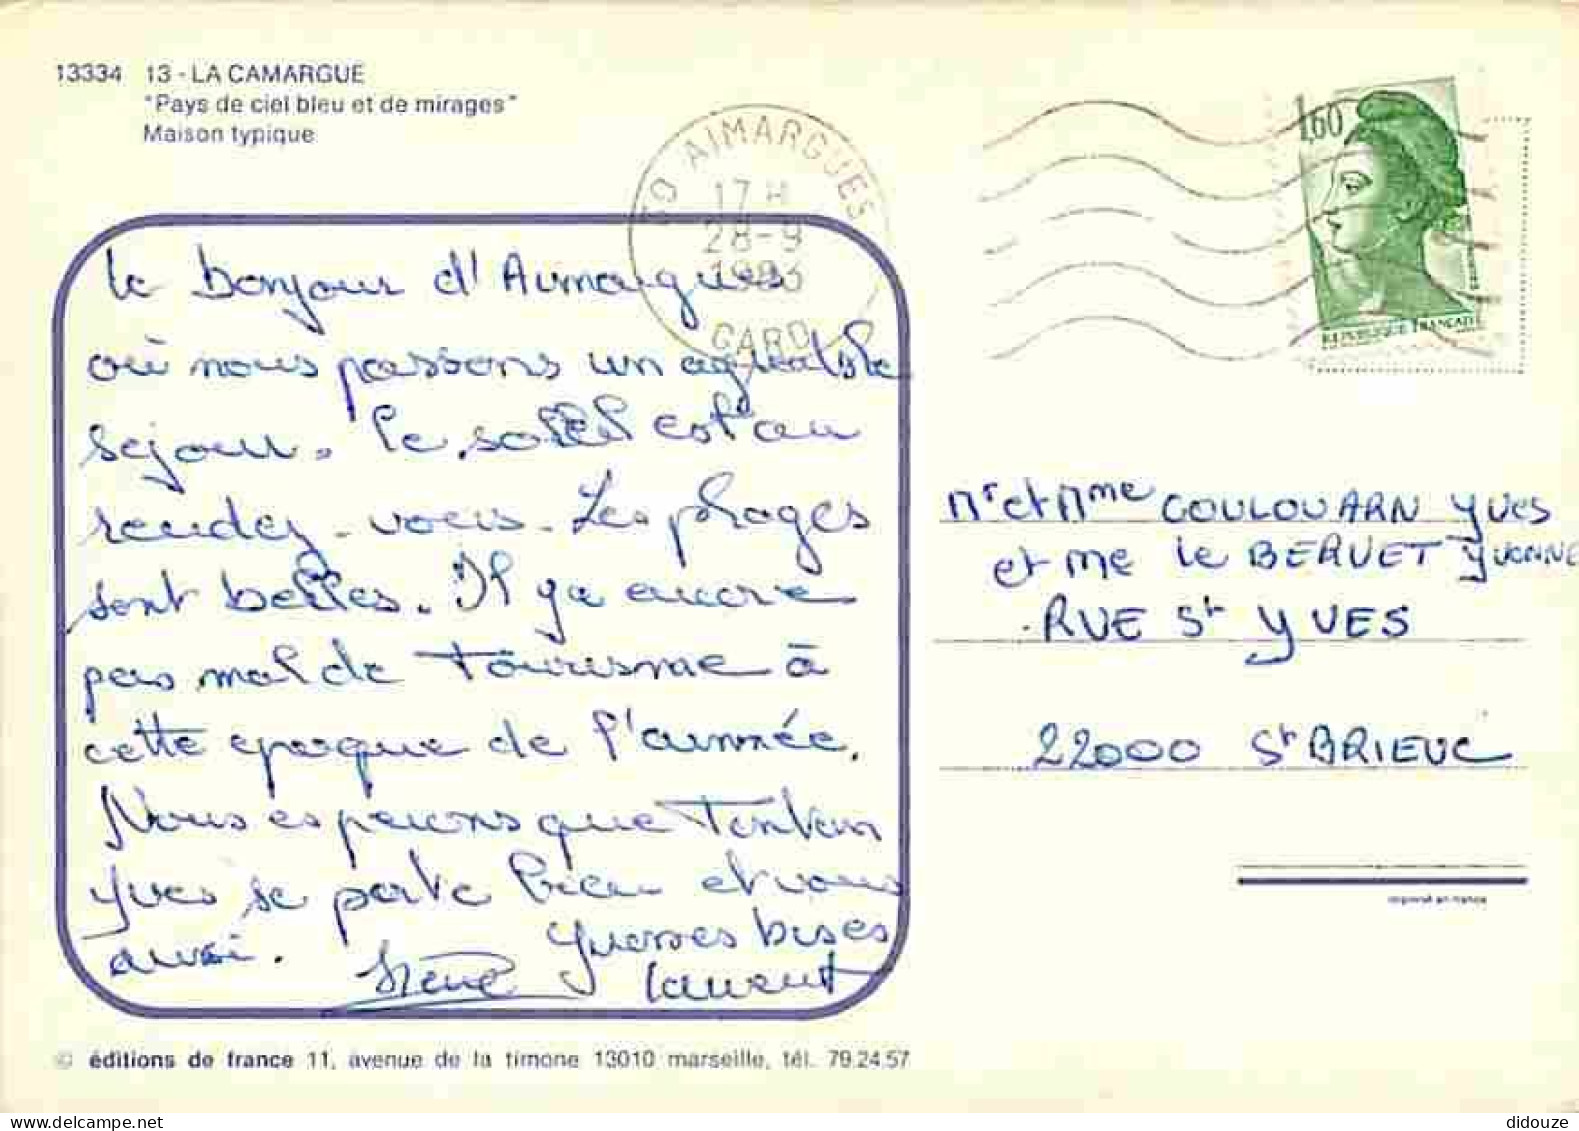 13334 13 - LA CAMARGUE
"Pays de ciel bleu et de mirages"
Maison typique
30 AIMARGUES
17 H
28-9
1983
GARD
1,60
REPUBLIQUE FRANÇAISE
le bonjour d'Aimargues
où nous passons un agréable
séjour. le soleil est au
rendez-vous. Les plages
sont belles. Il y a encore
pas mal de tourisme à
cette époque de l'année.
Nous espérons que Tonton
Yves se porte bien et vous
aussi.
grosses bises
Irène Laurent
Mr et Mme COULOUARN YVES
et me le BERVET YVONNE
RUE St YVES
22000 St BRIEUC
imprimé en france
© éditions de france 11, avenue de la timone 13010 marseille, tél. 79.24.57
delcampe.net
didouze